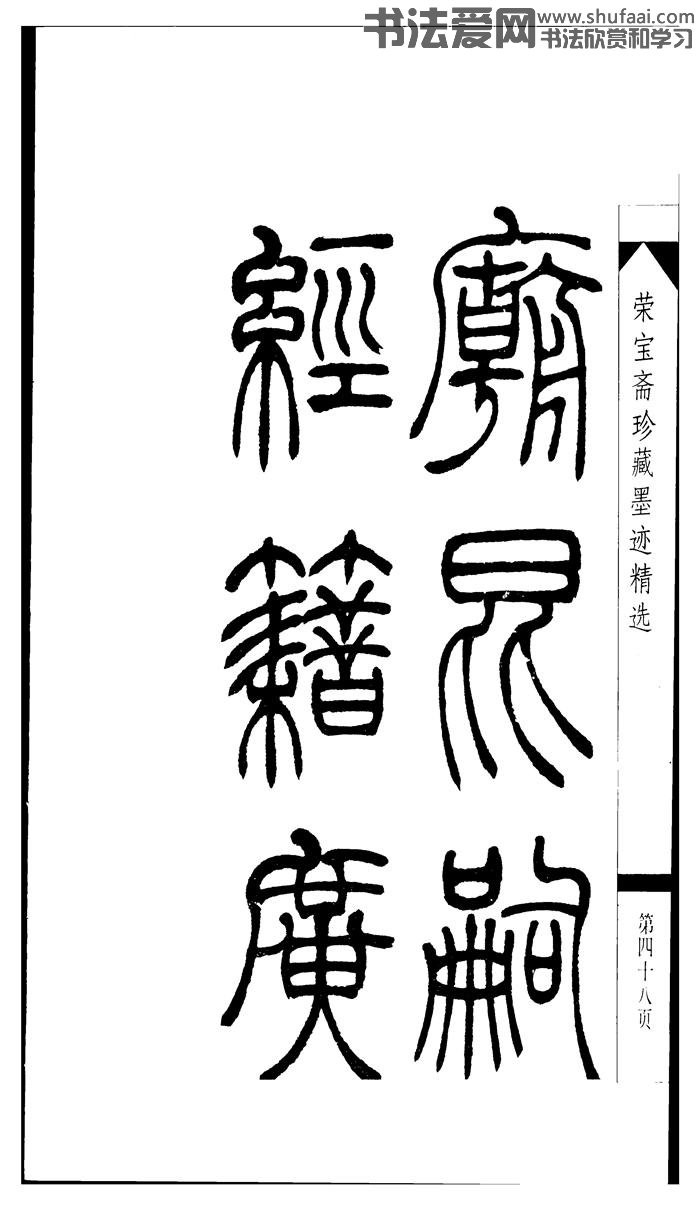 书法爱网 www.shufaai.com
书法欣赏和学习
荣宝斋珍藏墨迹精选
第四十八页
廟昆嗣
經籍廣